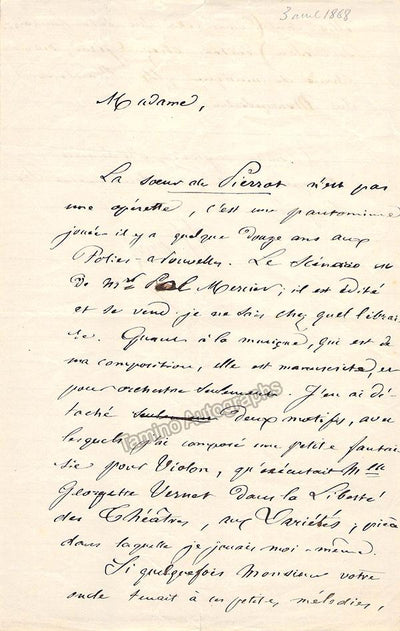 3 avril 1868
Madame,
La sœur de Pierrot n'est pas
une opérette, c'est une pantomime
jouée il y a quelque douze ans aux
Folies-nouvelles. Le Scénario est
de Mr Pol Mercier; il est édité
et se vend je ne sais chez quel librai-
re. Quant à la musique, qui est de
ma composition, elle est manuscrite, et
pour orchestre seulement. J'en ai dé-
taché seulement deux motifs, avec
lesquels j'ai composé une petite fantai-
sie pour Violon, qu'exécutait Mlle
Georgette Vernet dans la Liberté
des Théâtres, aux Variétés, pièce
dans laquelle je jouais moi-même.
Si quelquefois Monsieur votre
oncle tenait à ces petites mélodies,
Tamino Autographs